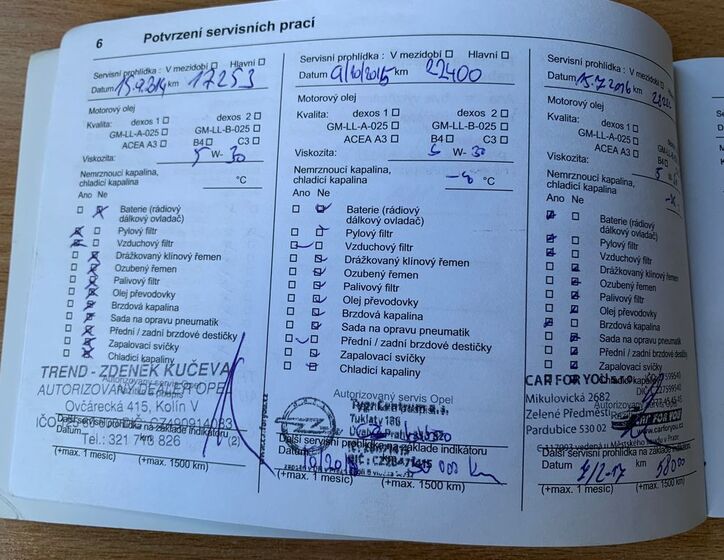 6 Potvrzení servisních prací
Servisní prohlídka : V mezidobí Hlavní
Datum 15.9.2014 km 17253
Motorový olej
Kvalita: dexos 1 dexos 2
GM-LL-A-025 GM-LL-B-025
ACEA A3 B4 C3
Viskozita: 5 W- 30
Nemrznoucí kapalina,
chladicí kapalina °C
Ano Ne
Baterie (rádiový
dálkový ovladač)
Pylový filtr
Vzduchový filtr
Drážkovaný klínový řemen
Ozubený řemen
Palivový filtr
Olej převodovky
Brzdová kapalina
Sada na opravu pneumatik
Přední / zadní brzdové destičky
Zapalovací svíčky
Chladicí kapaliny
TREND - ZDENĚK KUČEVA
Autorizovaný servis Opel
AUTORIZOVANÝ DEALER OPEL
Ovčárecká 415, Kolín V
Další servisní prohlídka na základě indikátoru
Datum
(+max. 1 měsíc) (+max. 1500 km)
Servisní prohlídka : V mezidobí Hlavní
Datum 9/10/2015 km 22400
Motorový olej
Kvalita: dexos 1 dexos 2
GM-LL-A-025 GM-LL-B-025
ACEA A3 B4 C3
Viskozita: 5 W- 30
Nemrznoucí kapalina,
chladicí kapalina °C
Ano Ne
Baterie (rádiový
dálkový ovladač)
Pylový filtr
Vzduchový filtr
Drážkovaný klínový řemen
Ozubený řemen
Palivový filtr
Olej převodovky
Brzdová kapalina
Sada na opravu pneumatik
Přední / zadní brzdové destičky
Zapalovací svíčky
Chladicí kapaliny
Autorizovaný servis Opel
Další servisní prohlídka na základě indikátoru
(+max. 1 měsíc) (+max. 1500 km)
Servisní prohlídka : V mezidobí
Datum 15.7.2016 km
Motorový olej
Kvalita: dexos 1
GM-LL-A-025
ACEA A3 B4
Viskozita: 5
Nemrznoucí kapalina,
chladicí kapalina
Ano Ne
Baterie (rádiový
dálkový ovladač)
Pylový filtr
Vzduchový filtr
Drážkovaný klínový řemen
Ozubený řemen
Palivový filtr
Olej převodovky
Brzdová kapalina
Sada na opravu pneumatik
Přední / zadní brzdové destičky
Zapalovací svíčky
CAR FOR YOU
Mikulovická 2682
Zelené Předměstí
Pardubice 530 02
CAR FOR YOU
www.carforyou.cz
Další servisní prohlídka na základě indikátoru
Datum
(+max. 1 měsíc) (+max. 1500 km)